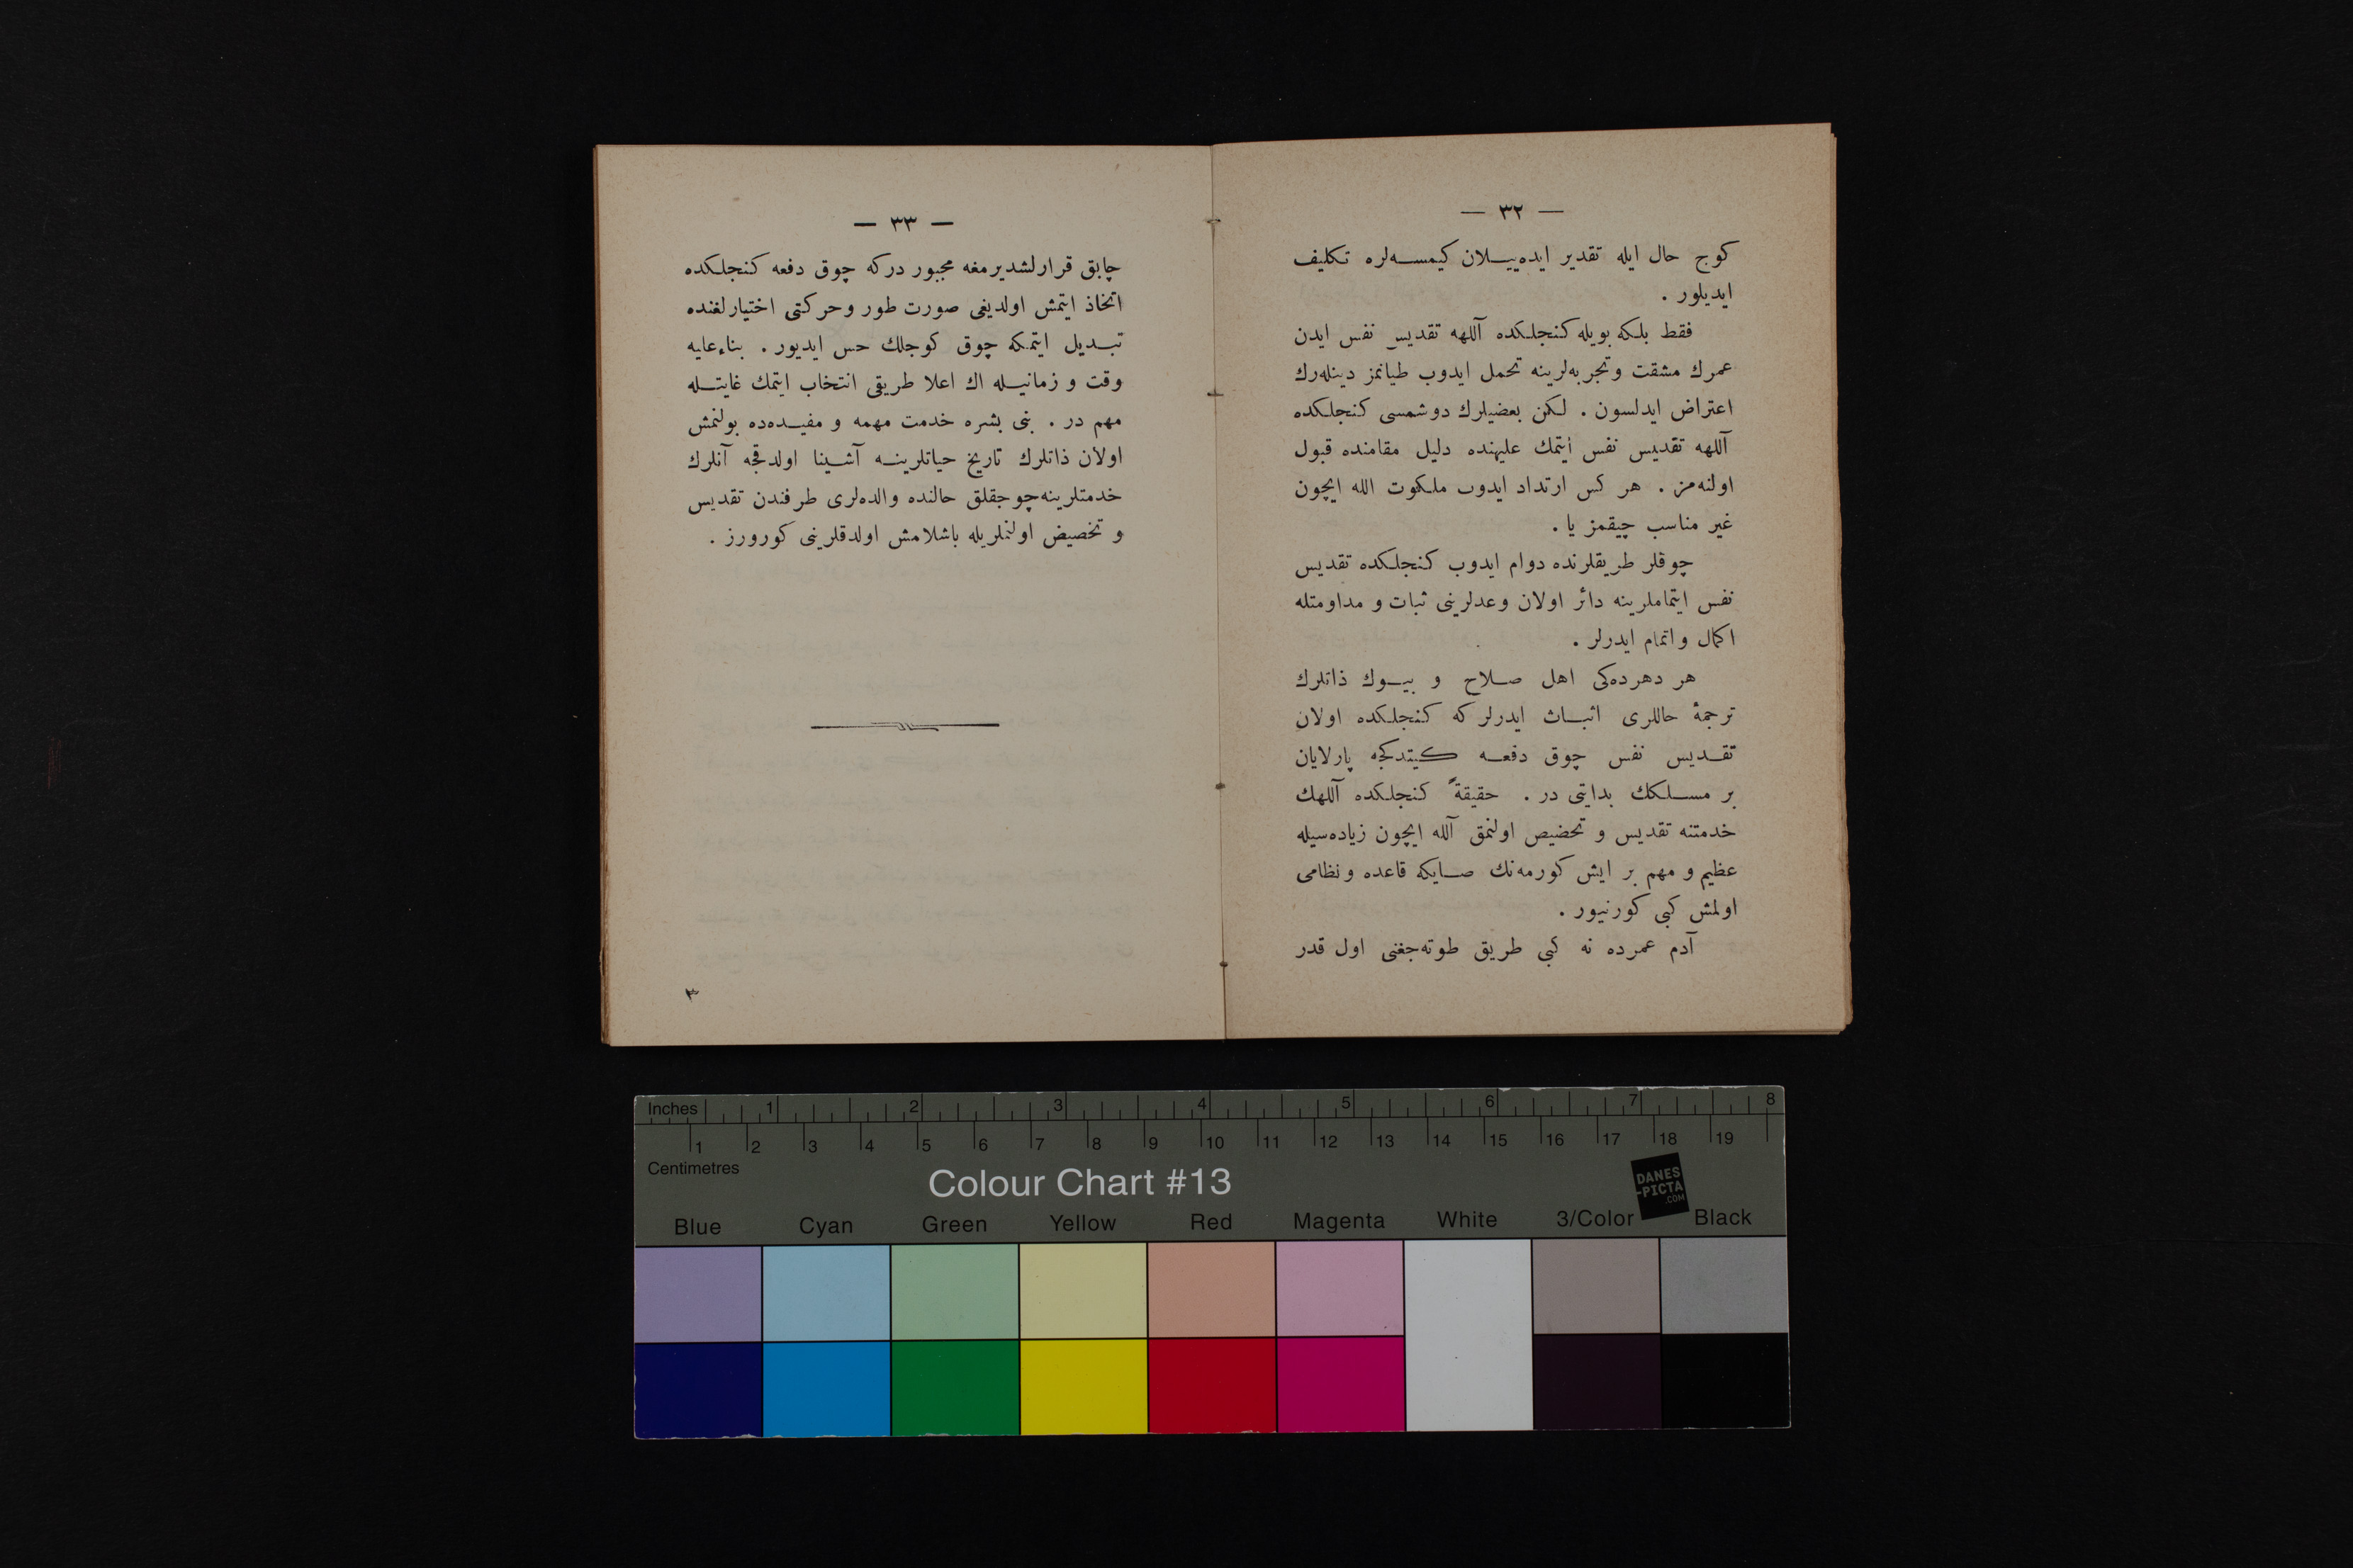 — ٣٢ —
كوج حال ايله تقدير ايده‌ييلان كيمسه‌لره تكليف
ايديلور .
فقط بلكه بويله كنجلكده آللهه تقديس نفس ايدن
عمرك مشقت و تجربه‌لرينه تحمل ايدوب طيانمز دينله‌رك
اعتراض ايدلسون . لكن بعضيلرك دوشمسى كنجلكده
آللهه تقديس نفس ايتمك عليهنده دليل مقامنده قبول
اولنه‌مز . هر كس ارتداد ايدوب ملكوت الله ايچون
غير مناسب چيقمز يا .
چوقلر طريقلرنده دوام ايدوب كنجلكده تقديس
نفس ايتماملرينه دائر اولان وعدلرينى ثبات و مداومتله
اكمال واتمام ايدرلر .
هر دهرده‌كى اهل صلاح و بيوك ذاتلرك
ترجمهٔ حاللرى اثبات ايدرلر كه كنجلكده اولان
تقديس نفس چوق دفعه كيتدكجه پارلايان
بر مسلكك بدايتى در . حقيقةً كنجلكده آللهك
خدمتنه تقديس و تحضيص اولنمق آلله ايچون زياده‌سيله
عظيم و مهم بر ايش كورمه‌نك صايكه قاعده ونظامى
اولمش كبى كورنيور .
آدم عمرده نه كبى طريق طوته‌جغنى اول قدر
— ٣٣ —
چابق قرارلشديرمغه مجبور دركه چوق دفعه كنجلكده
اتخاذ ايتمش اولديغى صورت طور وحركتى اختيارلغنده
تبديل ايتمكه چوق كوجلك حس ايديور . بناءعليه
وقت و زمانيله اك اعلا طريقى انتخاب ايتمك غايتله
مهم در . بنى بشره خدمت مهمه و مفيده‌ده بولنمش
اولان ذاتلرك تاريخ حياتلرينه آشينا اولدقجه آنلرك
خدمتلرينه چوجقلق حالنده والده‌لرى طرفندن تقديس
و تخصيض اولنملريله باشلامش اولدقلرينى كورورز .
٣
Inches 1 2 3 4 5 6 7 8
1 2 3 4 5 6 7 8 9 10 11 12 13 14 15 16 17 18 19
Centimetres
Colour Chart #13
DANES
-PICTA
.COM
Blue Cyan Green Yellow Red Magenta White 3/Color Black